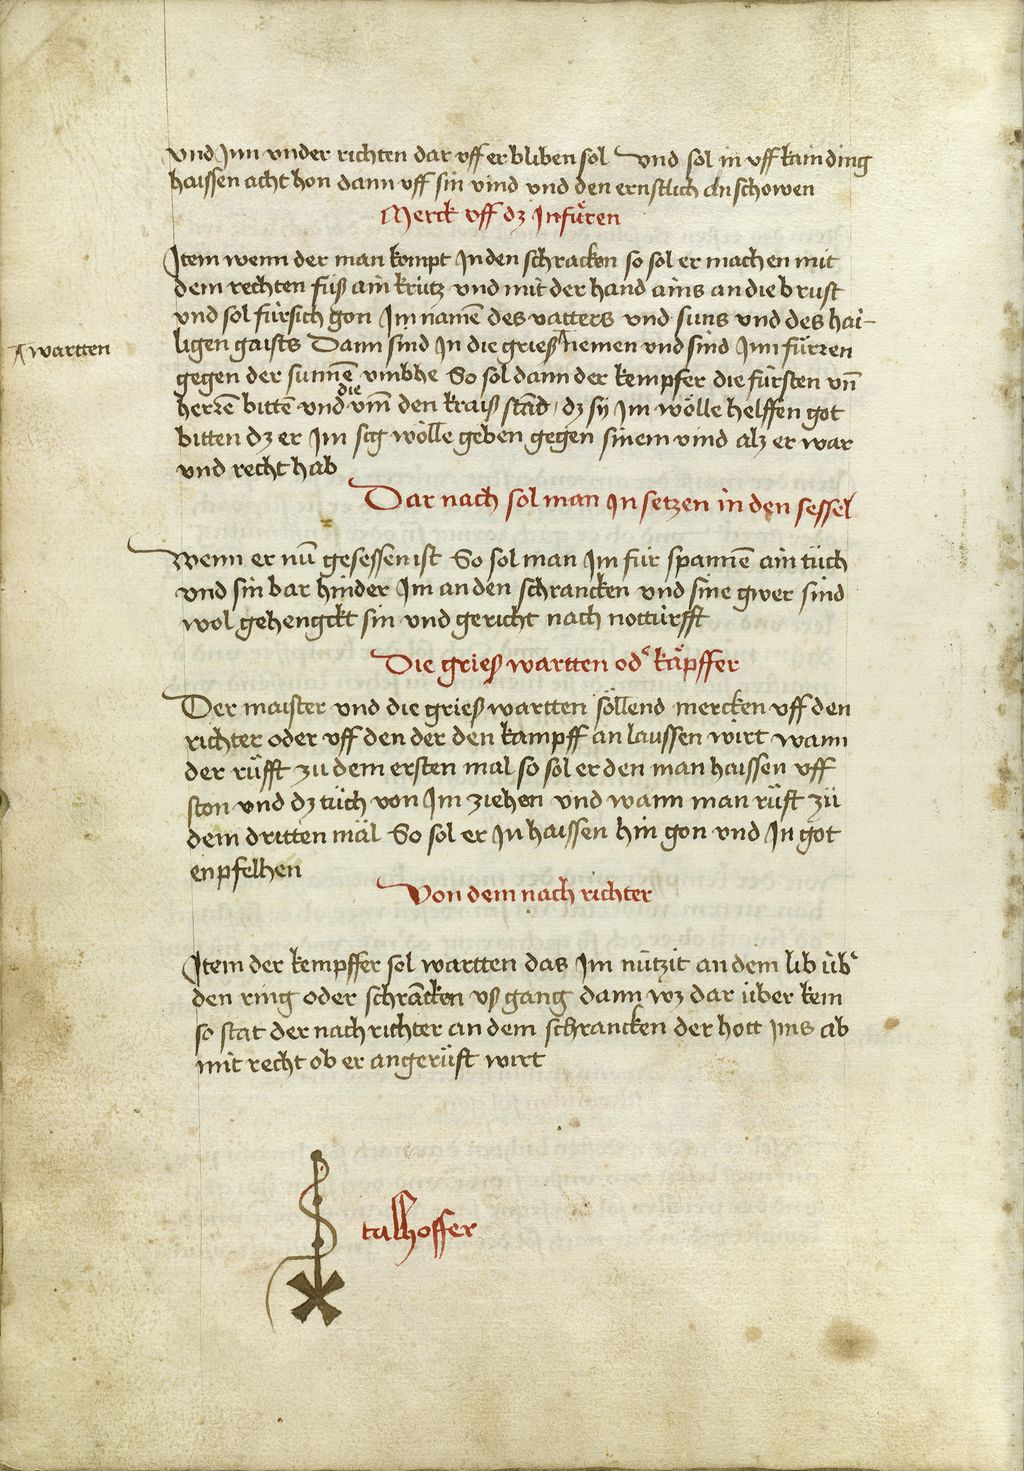 vnd Jnn vnder richten dar vff er bliben sol vnd sol in vff kain ding
haissen acht hon dann vff sin vind vnd den ernstlich an schowen
Merck vff dz Jnfüren
Jtem wenn der man kompt Jn den schracken so sol er machen mit
dem rechten füß ain krütz vnd mit der hand ains an die brust
vnd sol fürsich gon Jm namē des vatters vnd suns vnd des hai-
ligen gaists Dann sind Jn die grieß nemen vnd sind Jnn fürren
wartten
gegen der sunnē vmbhe So sol dann der kempfer die fürsten vn̄
herrē bittē vnd die vm̄ den kraiß stād dz sÿ Jm wölle helffen got
bitten dz er Jm sig wölle geben gegen sinem vind alz er war
vnd recht hab
Dar nach sol man Jn setzen in den sessel
Wenn er nū gesessen ist So sol man Jm für spannē ain tüch
vnd sin bar hinder Jm an den schrancken vnd sine gwer sind
wol gehengckt sin vnd gericht nach nottürfft
Die grieß wartten od' käpffer
Der maister vnd die grieß wartten söllend mercken vff den
richter oder vff den der den kampff an laussen wirt wann
der rüfft zu dem ersten mal so sol er den man haissen vff
ston vnd dz tüch von Jm ziehen vnd wann man rüft zü
dem dritten mäl So sol er Jn haissen hin gon vnd Jn got
enpfelhen
Von dem nach richter
Jtem der kempffer sol wartten das Jm nützit an dem lib üb'
den ring oder schrācken vß gang dann wz dar über kem
so stat der nach richter an dem schrancken der hott Jms ab
mit recht ob er angerüft wirt
talhoffer